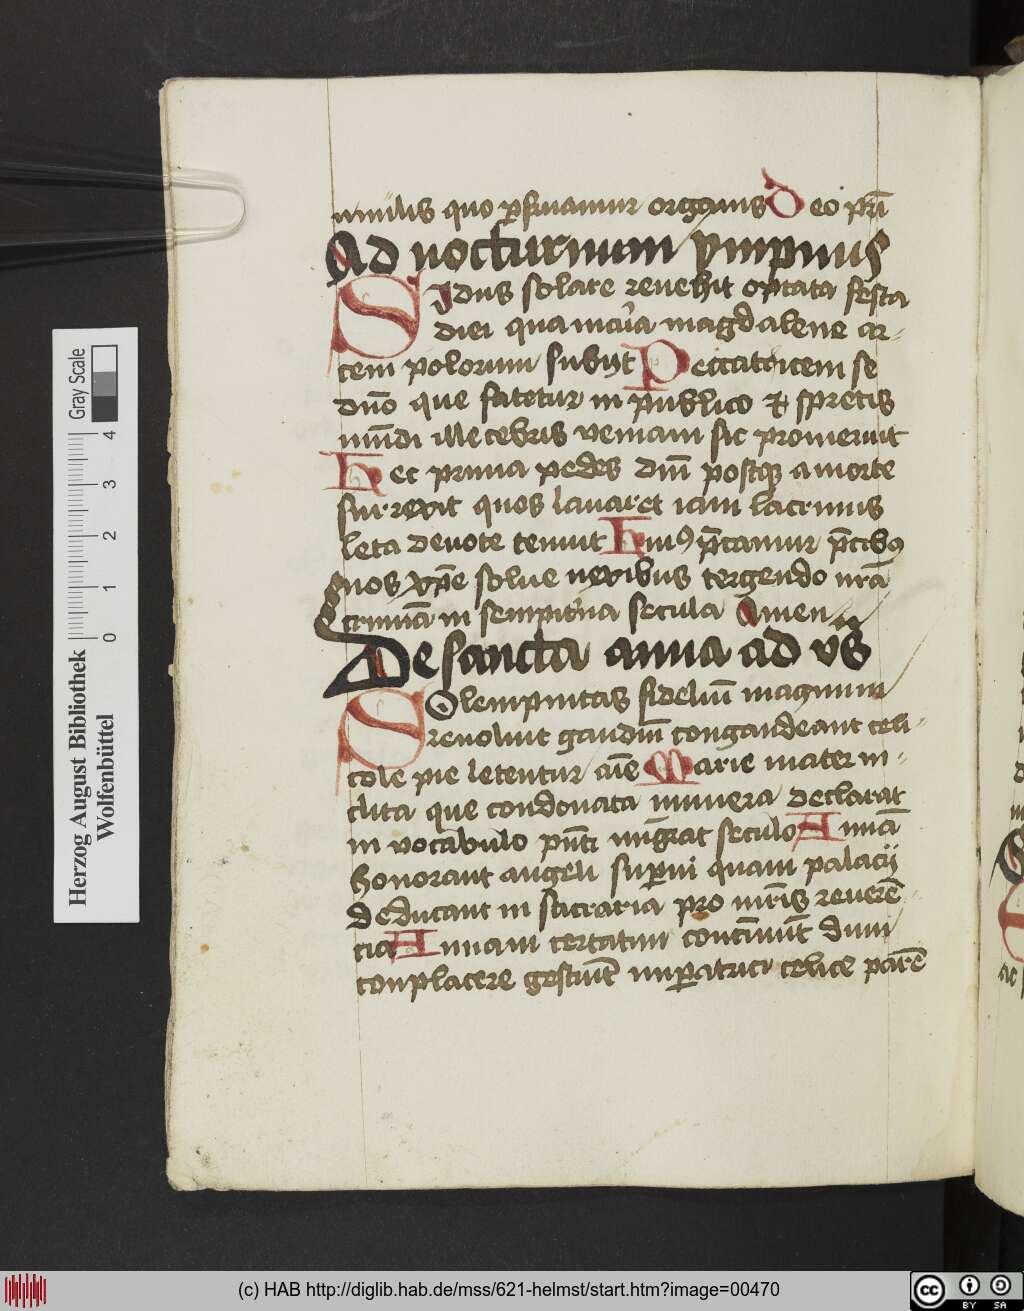 similis quo ꝑfruamur organis Deo pr̄i
Ad nocturnum ympnus
Sidus solare revehit optata festa
diei qua mūa magdalene ar-
cem polorum subijt Peccatricem se
dn̄o que fatetur in publico ⁊ spretis
mūdi illecebris veniam sic promeruit
Hec prima pedes dn̄i postqȝ a morte
surrexit quos lavaret iam lacrimis
leta devote tenuit Huiꝰ p̄camur p̄cibꝰ
nos xp̄e solve nexibus tergendo nr̄a
crimīa in sempit̄na secula Amen
De sancta anna ad vs̄
Solempnitas fidelū magnum
revoluit gaudiū congaudeant celi-
cole pie letentur aīe Marie mater in-
clita que condonata munera declarat
in vocabulo pn̄ti mīgrat seculo Annā
honorant angeli suꝑni quam palacij
deducant in sacraria pro nīris reverē-
cia Annam certatim contīnūt dum
conplacere gestiūt imꝑatrici celice parē
Herzog August Bibliothek
Wolfenbüttel
0 1 2 3 4
Gray Scale
(c) HAB http://diglib.hab.de/mss/621-helmst/start.htm?image=00470
cc BY SA